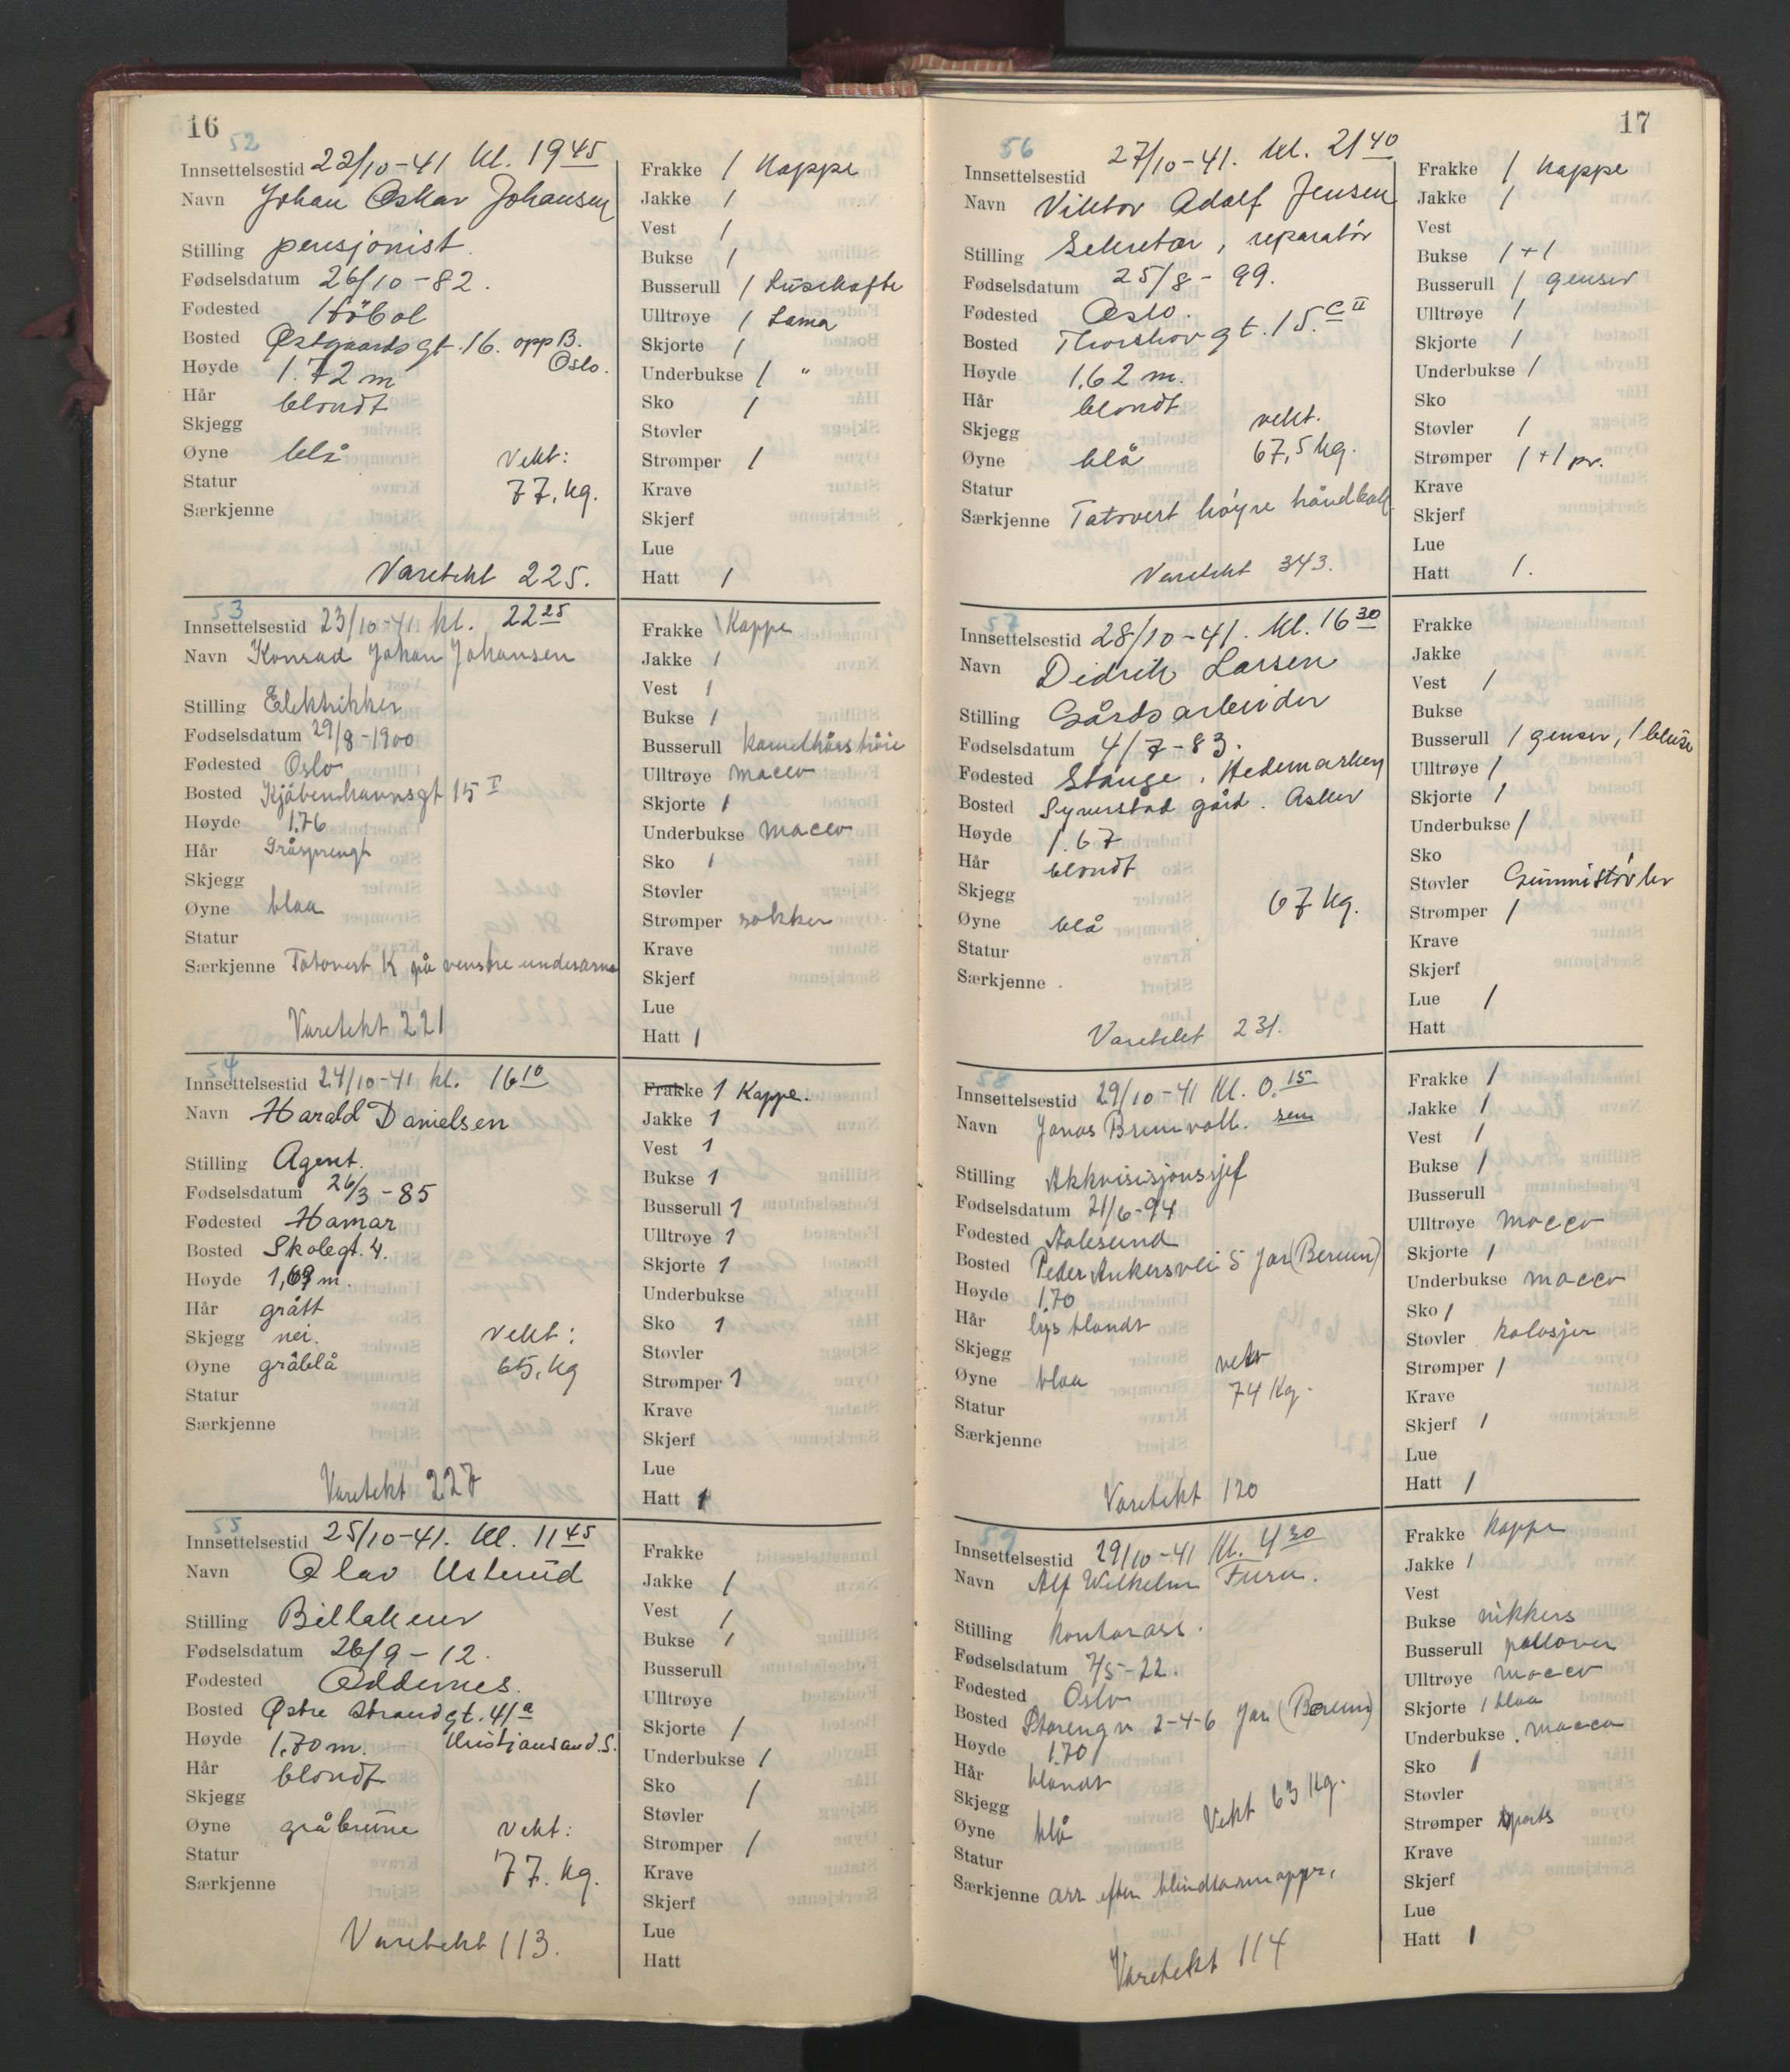 16
52
Innsettelsestid 22/10-41 kl. 19 45
Navn Johan Oskar Johansen
Stilling pensjonist.
Fødselsdatum 26/10-82.
Fødested Høbøl
Bosted Østgaards gt. 16. opp B.
Oslo.
Høyde 1.72 m
Hår blondt
Skjegg
Øyne blå Vekt:
Statur 77. kg.
Særkjenne
Varetekt 225.
Frakke 1 Kappe
Jakke 1
Vest 1
Bukse 1
Busserull 1 Lusekofte
Ulltrøye 1 Lama
Skjorte 1
Underbukse 1 "
Sko 1
Støvler
Strømper 1
Krave
Skjerf
Lue
Hatt 1
53
Innsettelsestid 23/10-41 kl. 22 25
Navn Konrad Johan Johansen
Stilling Elektrikker
Fødselsdatum 29/8-1900
Fødested Oslo
Bosted Kjøbenhavnsgt 15 I
Høyde 1.76
Hår Gråsprengt
Skjegg
Øyne blaa
Statur
Særkjenne Tatovert K på venstre underarm
Varetekt 221
Frakke 1 Kappe
Jakke 1
Vest 1
Bukse 1
Busserull Kamelhårstrøie
Ulltrøye macco
Skjorte 1
Underbukse macco
Sko 1
Støvler
Strømper sokker
Krave
Skjerf
Lue
Hatt 1
54
Innsettelsestid 24/10-41 kl. 16 10
Navn Harald Danielsen
Stilling Agent.
Fødselsdatum 26/3-85
Fødested Hamar
Bosted Skolegt. 4.
Høyde 1,69 m.
Hår grått
Skjegg nei. Vekt:
Øyne gråblå 65. kg
Statur
Særkjenne
Varetekt 227
Frakke 1 Kappe.
Jakke 1
Vest 1
Bukse 1
Busserull 1
Ulltrøye 1
Skjorte 1
Underbukse
Sko 1
Støvler
Strømper 1
Krave
Skjerf
Lue
Hatt 1
55
Innsettelsestid 25/10-41. kl. 11 45
Navn Olav Usterud
Stilling Billakerer
Fødselsdatum 26/9-12.
Fødested Oddernes.
Bosted Østre Strandgt. 41 a
Høyde 1.70 m. Kristiansand.S.
Hår blondt
Skjegg
Øyne gråbrune Vekt:
Statur 77. kg.
Særkjenne
Varetekt 113.
Frakke
Jakke 1
Vest 1
Bukse 1
Busserull
Ulltrøye
Skjorte 1
Underbukse 1
Sko 1
Støvler
Strømper 1
Krave
Skjerf
Lue
Hatt
17
56
Innsettelsestid 27/10-41. kl. 21 40
Navn Viktor Adolf Jensen
Stilling Sekretær, reparatör
Fødselsdatum 25/8-99.
Fødested Oslo.
Bosted Thorshovgt. 15. C II
Høyde 1.62 m.
Hår blondt vekt.
Skjegg 67,5 kg.
Øyne blå
Statur
Særkjenne Tatovert höyre håndbak
Varetekt 343.
Frakke 1 Kappe
Jakke 1
Vest
Bukse 1+1
Busserull 1 genser
Ulltrøye 1
Skjorte 1
Underbukse 1
Sko
Støvler 1
Strømper 1+1 pr.
Krave
Skjerf
Lue
Hatt 1.
57
Innsettelsestid 28/10-41. kl. 16 30
Navn Didrik Larsen
Stilling Gårdsarbeider
Fødselsdatum 4/7-83.
Fødested Stange. Hedemarken
Bosted Synerstad gård. Asker
Høyde 1.67
Hår blondt
Skjegg 67 kg.
Øyne blå
Statur
Særkjenne .
Varetekt 231.
Frakke
Jakke
Vest 1
Bukse
Busserull 1 genser, 1 bluse
Ulltrøye 1
Skjorte 1
Underbukse 1
Sko
Støvler Gummistövler
Strømper 1
Krave
Skjerf
Lue 1
Hatt
58
Innsettelsestid 29/10-41 kl. 0. 15
Navn Jonas Brunvoll. sen
Stilling Akkvisisjonssjef
Fødselsdatum 21/6-94
Fødested Aalesund
Bosted Peder Ankersvei 5 Jar (Bærum)
Høyde 1.70
Hår lys blondt
Skjegg vekt
Øyne blaa 74 Kg.
Statur
Særkjenne
Varetekt 120
Frakke 1
Jakke 1
Vest 1
Bukse 1
Busserull
Ulltrøye macco
Skjorte 1
Underbukse macco
Sko 1
Støvler kalosjer
Strømper 1
Krave
Skjerf 1
Lue
Hatt 1
59
Innsettelsestid 29/10-41 kl. 4 30
Navn Alf Wilhelm Furu.
Stilling kontorass.
Fødselsdatum 7/5-22.
Fødested Oslo
Bosted Storengv 2-4-6 Jar (Bærum)
Høyde 1.70
Hår blondt
Skjegg Vekt 63 Kg.
Øyne blå
Statur
Særkjenne arr efter blindtarmoppr.
Varetekt 114
Frakke Kappe
Jakke 1
Vest
Bukse nikkers
Busserull pullover
Ulltrøye macco
Skjorte 1 blaa
Underbukse . macco
Sko 1
Støvler
Strømper sports
Krave
Skjerf
Lue
Hatt 1